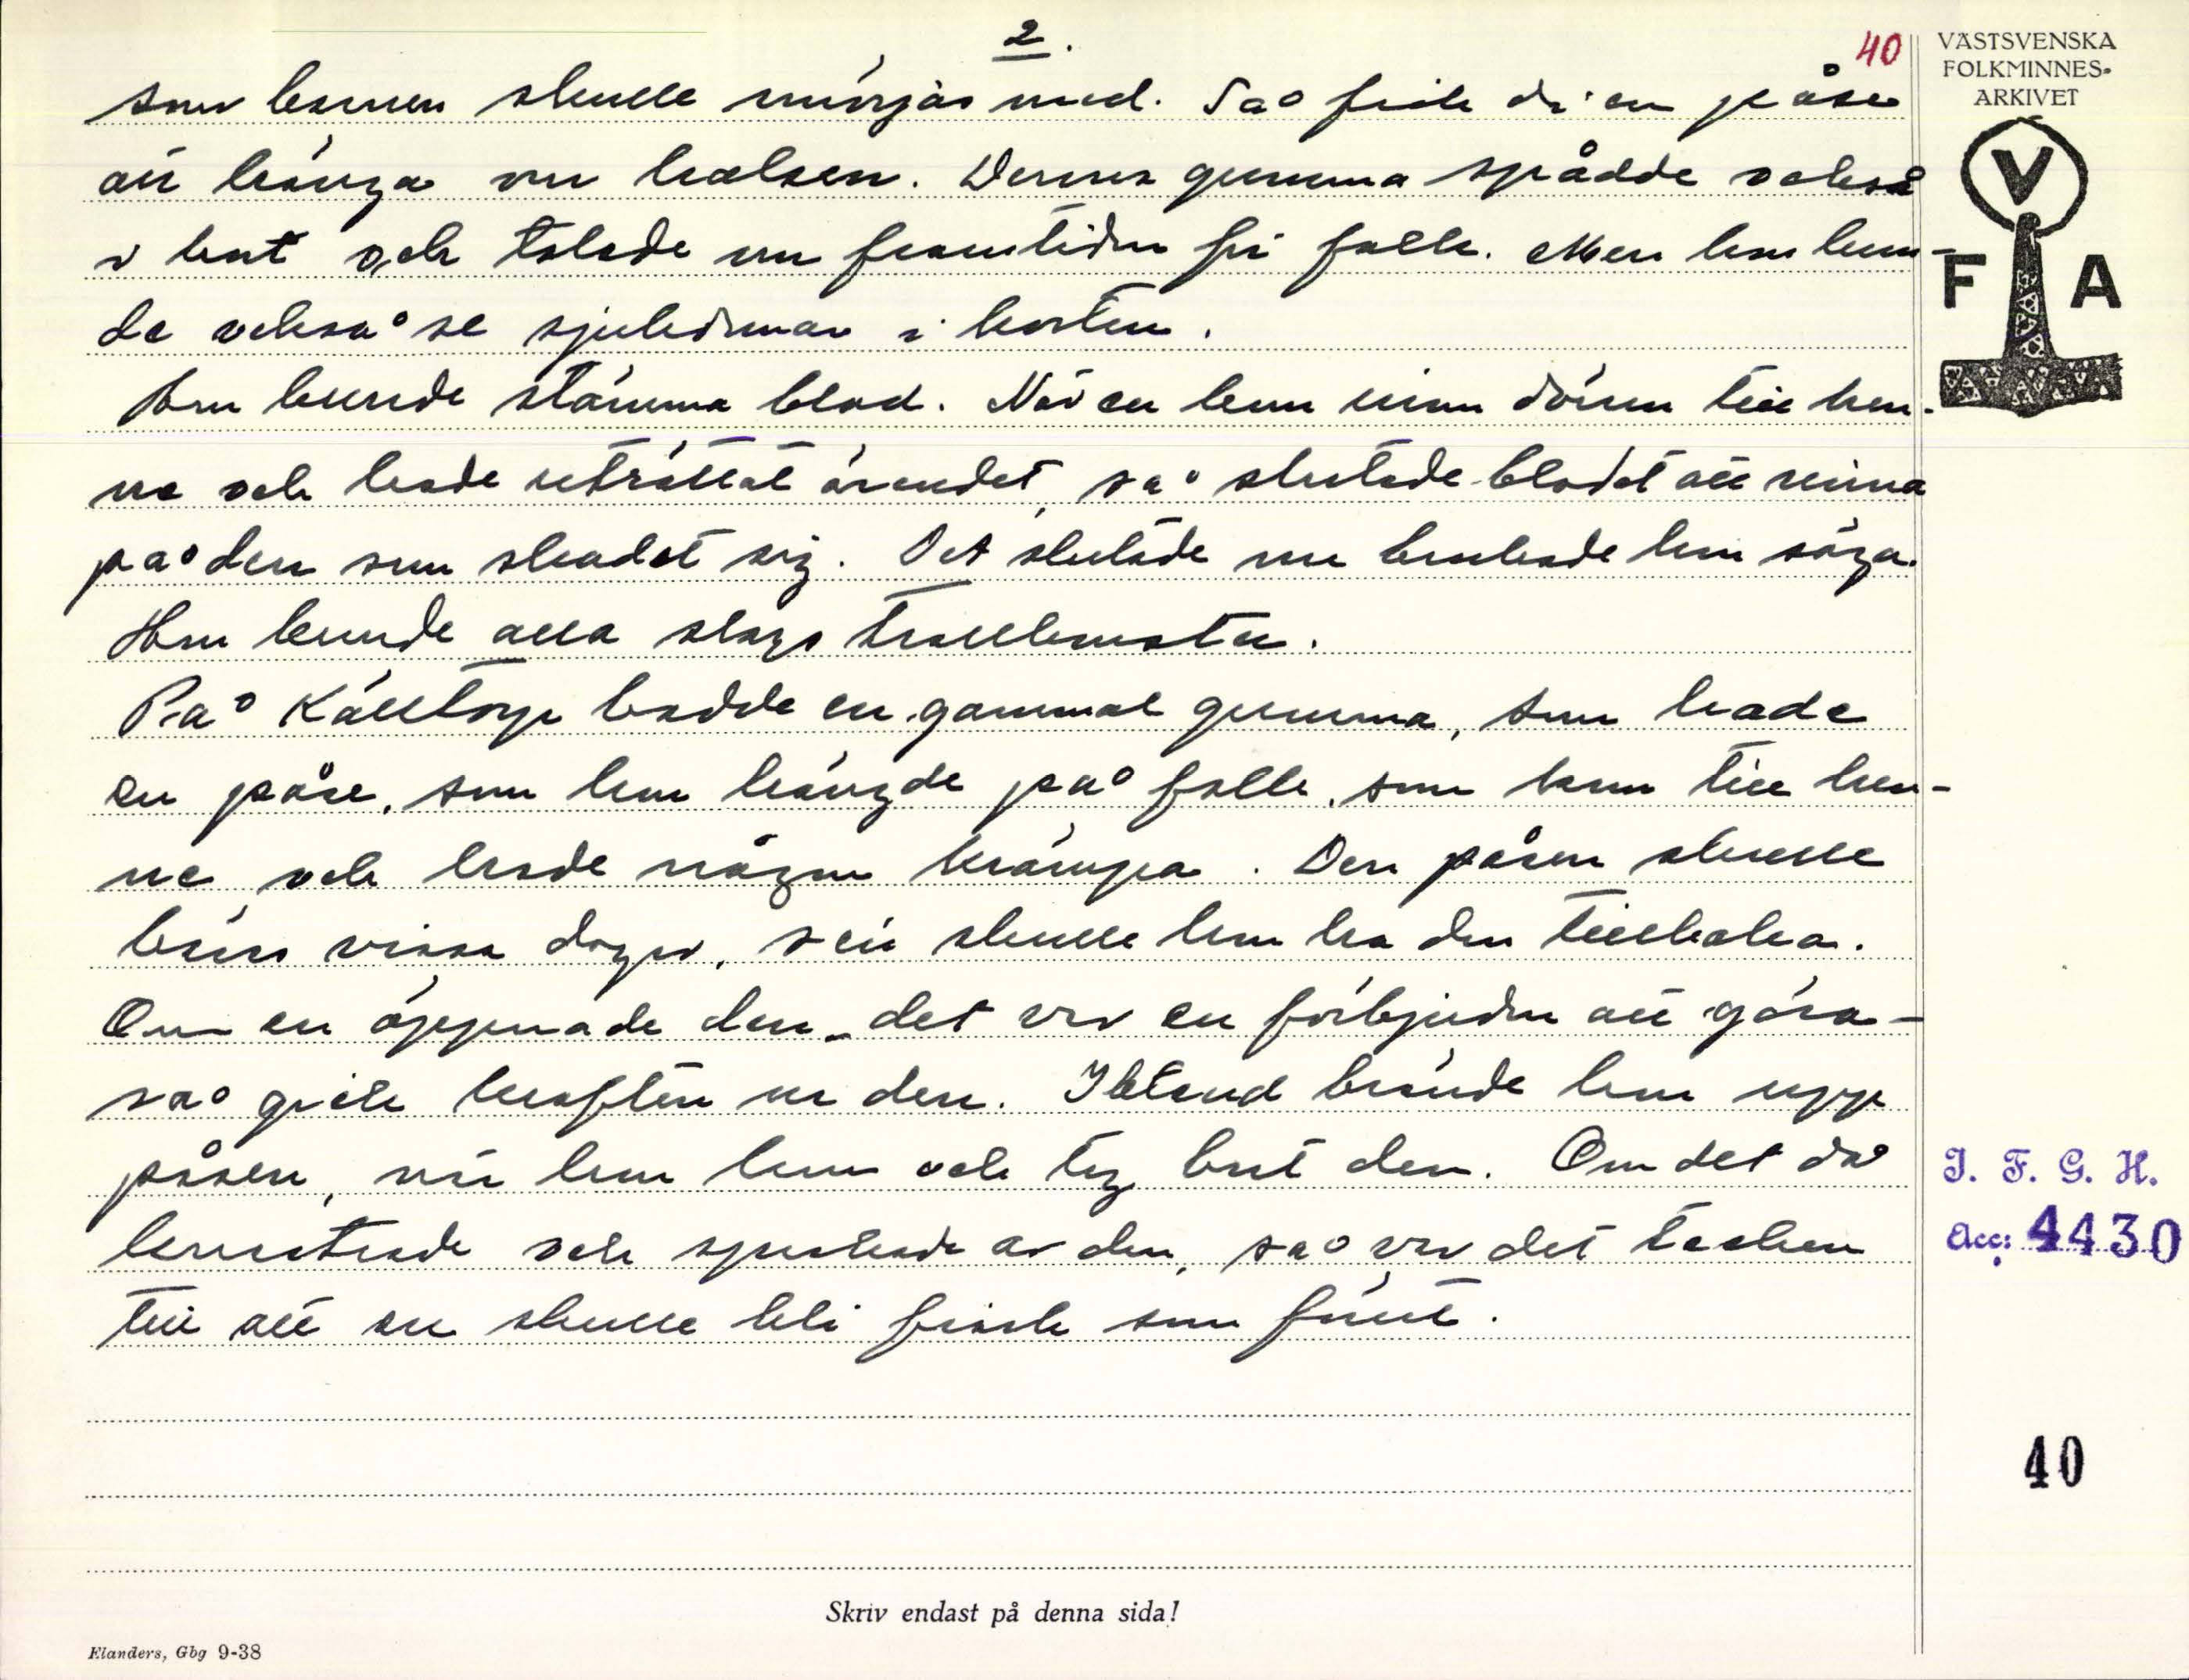 2.
40
VÄSTSVENSKA
FOLKMINNES-
ARKIVET
som barnen skulle smörjas med. Så fick di en påse
att hänga om halsen. Denna gumma spådde också
i kort och talade om framtiden för folk. Men hon kun-
de också se sjukdomar i korten.
V
F A
Hon kunde stämma blod. När en kom innom dörren till hen-
ne och hade uträttat ärendet, så slutade blodet att rinna
på den som skadat sig. Det slutade nu brukade hon säga.
Hon kunde alla slags trollkonster.
På Källtorp bodde en gammal gumma, som hade
en påse, som hon hängde på folk, som kom till hen-
ne och hade någon krämpa. Den påsen skulle
bäras vissa dagar, sen skulle hon ha den tillbaka.
Om en öppnade den - det var en förbjuden att göra -
så gick kraften ur den. Ibland brände hon upp
påsen, när hon kom och tog bort den. Om det då
knastrade och sprakade av den, så var det tecken
till att en skulle bli frisk som förut.
I. F. G. H.
Acc: 4430
40
Skriv endast på denna sida!
Elanders, Gbg 9-38